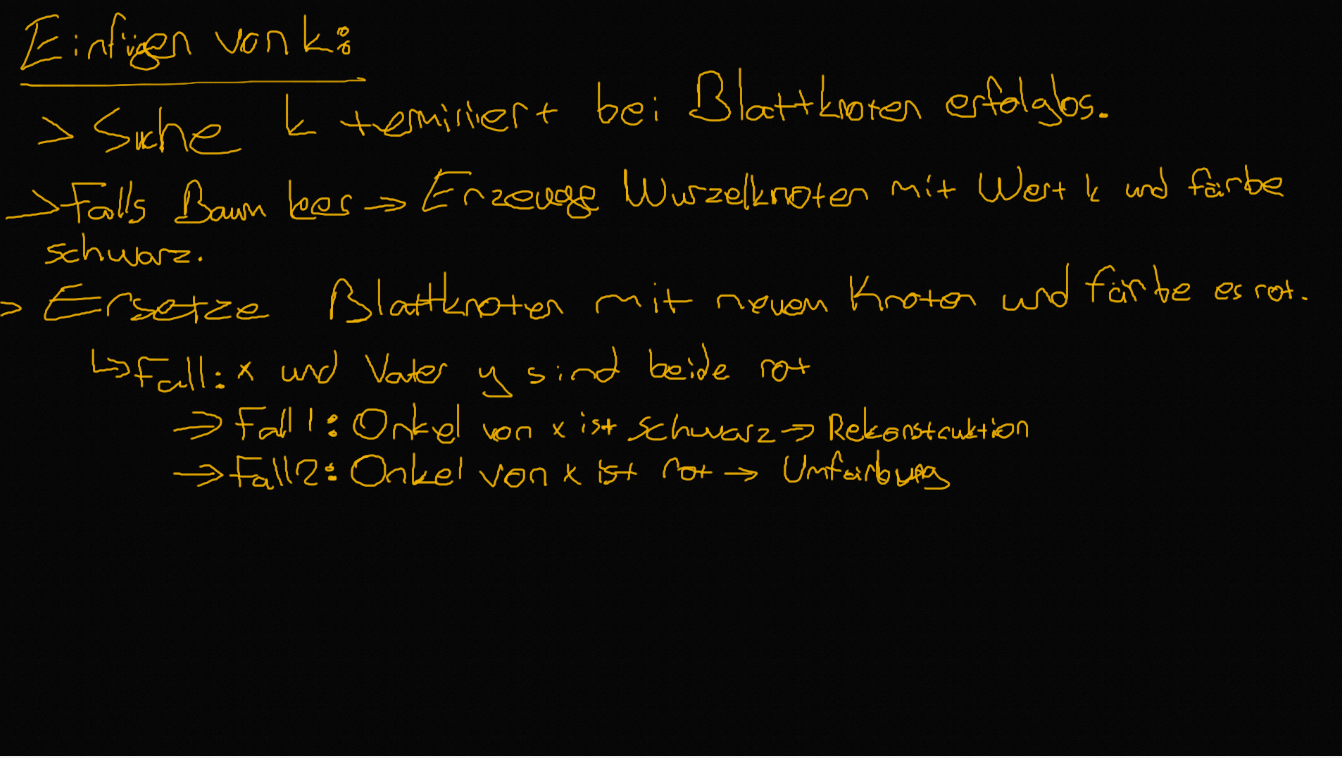 Einfügen von k:
> Suche k terminiert bei Blattknoten erfolglos.
> Falls Baum leer → Erzeuge Wurzelknoten mit Wert k und färbe
schwarz.
> Ersetze Blattknoten mit neuem Knoten und färbe es rot.
↳ Fall: x und Vater y sind beide rot
→ Fall 1: Onkel von x ist schwarz → Rekonstruktion
→ Fall 2: Onkel von x ist rot → Umfärbung